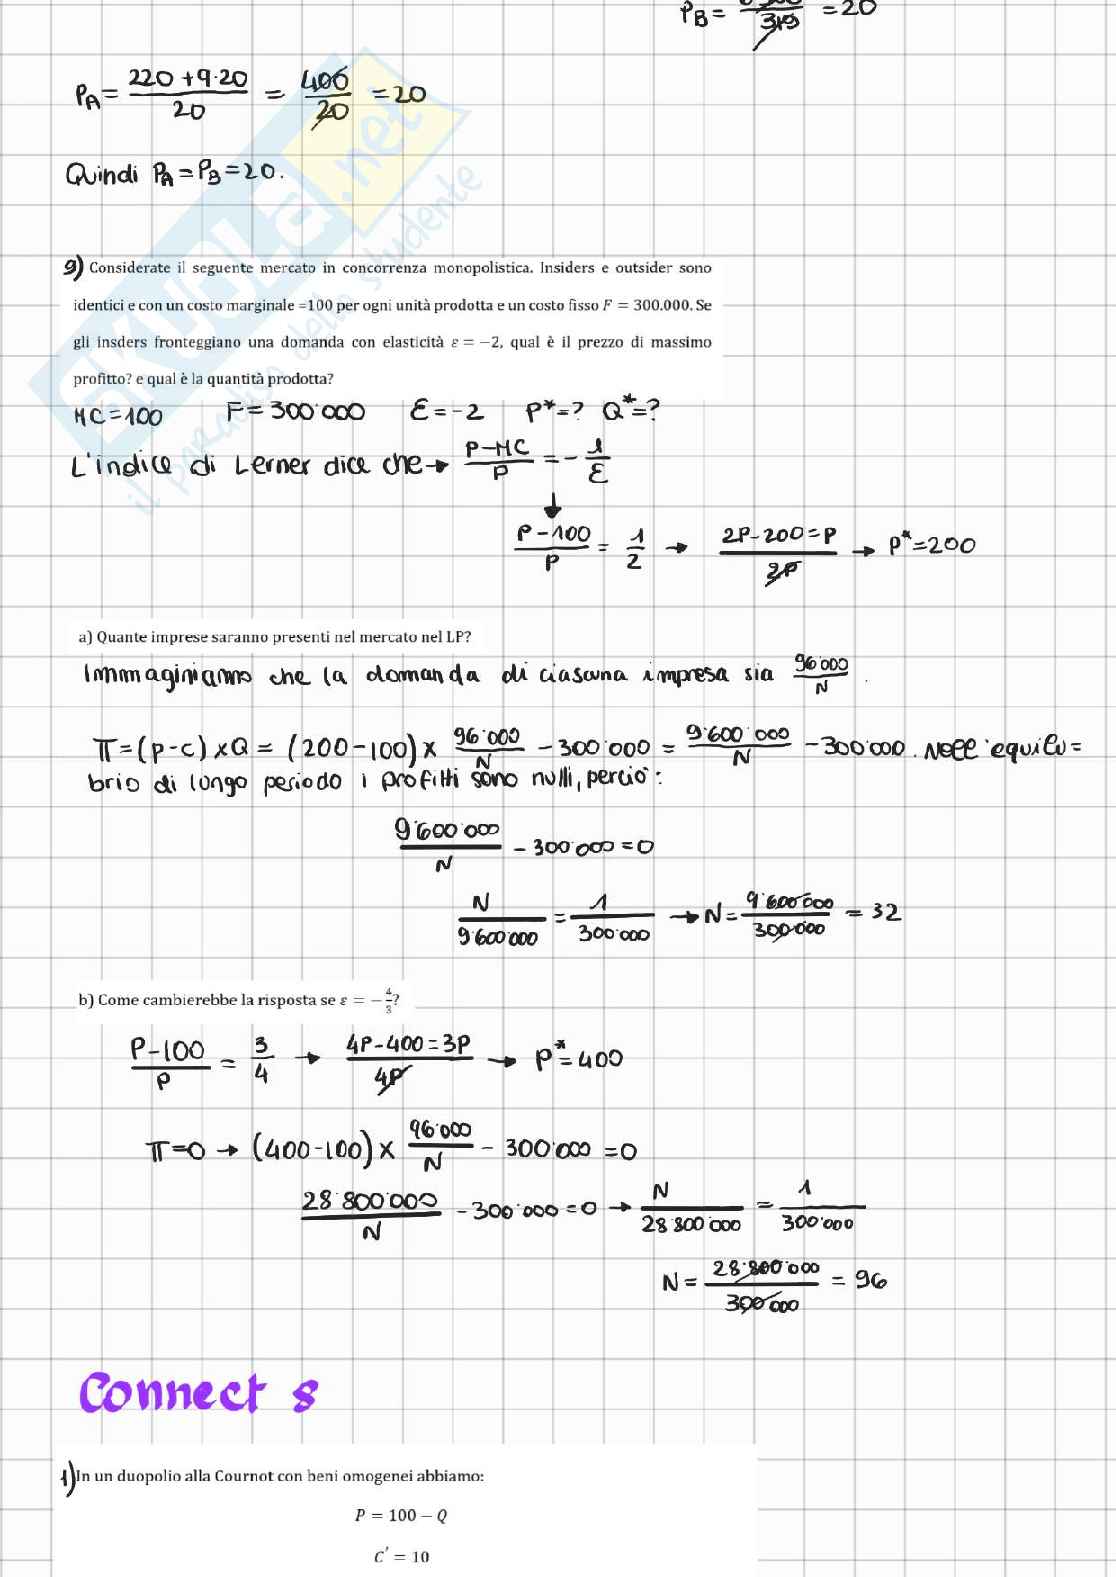 P_B = /319 = 20
P_A = (220 + 9·20)/20 = 400/20 = 20
Quindi P_A = P_B = 20.
SKUOLA.net
il paradiso dello studente
9) Considerate il seguente mercato in concorrenza monopolistica. Insiders e outsider sono
identici e con un costo marginale =100 per ogni unità prodotta e un costo fisso F = 300.000. Se
gli insders fronteggiano una domanda con elasticità ε = −2, qual è il prezzo di massimo
profitto? e qual è la quantità prodotta?
MC = 100 F = 300'000 Ɛ = -2 P* = ? Q* = ?
L'indice di Lerner dice che → (P-MC)/P = - 1/Ɛ
↓
(P-100)/P = 1/2 → (2P-200 = P)/2P → P* = 200
a) Quante imprese saranno presenti nel mercato nel LP?
Immaginiamo che la domanda di ciascuna impresa sia 96'000/N.
π = (p-c) × Q = (200-100) × 96'000/N - 300'000 = 9'600'000/N - 300'000. Nell'equili=
brio di lungo periodo i profitti sono nulli, perciò:
9'600'000/N - 300'000 = 0
N/9'600'000 = 1/300'000 → N = 9'600'000/300'000 = 32
b) Come cambierebbe la risposta se ε = −4/3?
(P-100)/P = 3/4 → (4P-400 = 3P)/4P → P* = 400
π = 0 → (400-100) × 96'000/N - 300'000 = 0
28'800'000/N - 300'000 = 0 → N/28'800'000 = 1/300'000
N = 28'800'000/300'000 = 96
Connect 8
1) In un duopolio alla Cournot con beni omogenei abbiamo:
P = 100 − Q
C′ = 10